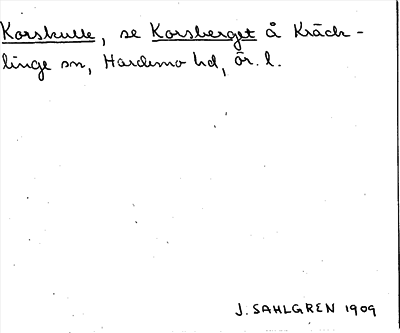 Korskulle, se Korsberget å Kräck-
linge sn, Hardemo hd, ör. l.
J. SAHLGREN 1909